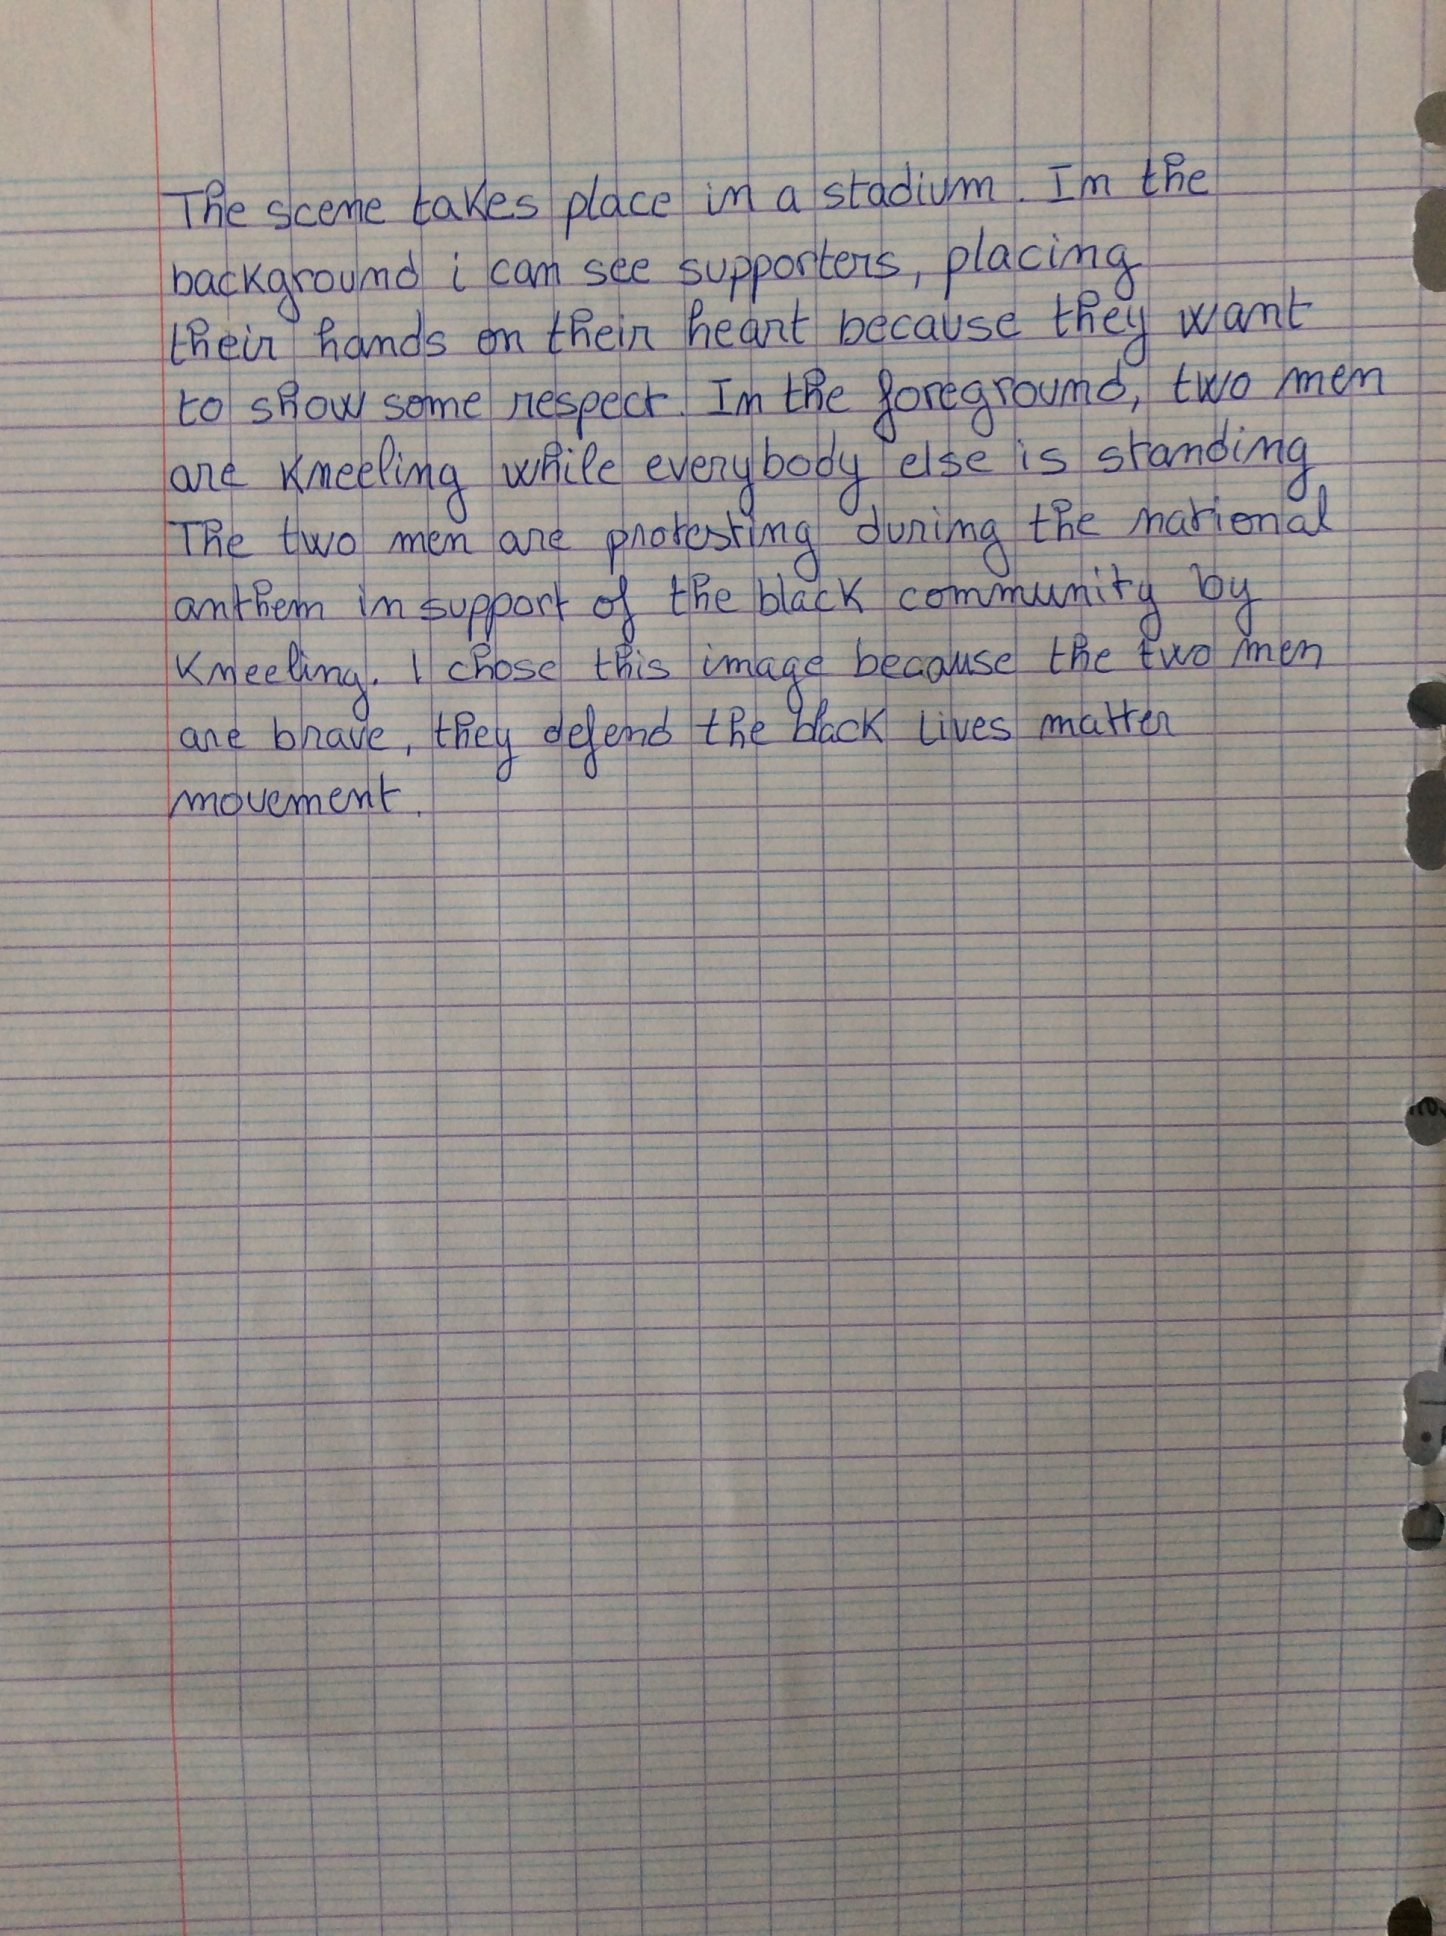 The scene takes place in a stadium. In the
background i can see supporters, placing
their hands on their heart because they want
to show some respect. In the foreground, two men
are kneeling while everybody else is standing
The two men are protesting during the national
anthem in support of the black community by
kneeling. I chose this image because the two men
are brave, they defend the black lives matter
movement.